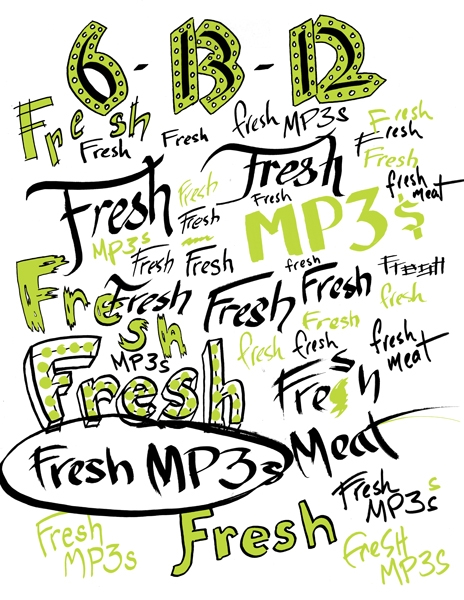 6-13-12
Fresh
Fresh
Fresh
fresh MP3s
Fresh
Fresh
Fresh
fresh meat
Fresh
MP3s
Fresh
Fresh
Fresh
Fresh
MP3$
Fresh
Fresh
fresh
Fresh
Fresh
Fresh
Fresh
Fresh
Fresh
fresh
Fresh
fresh
fresh
fresh
meat
MP3s
Fresh
Fresh
Meat
Fresh MP3s
Fresh
MP3s
Fresh
MP3s
Fresh
Fresh
MP3s